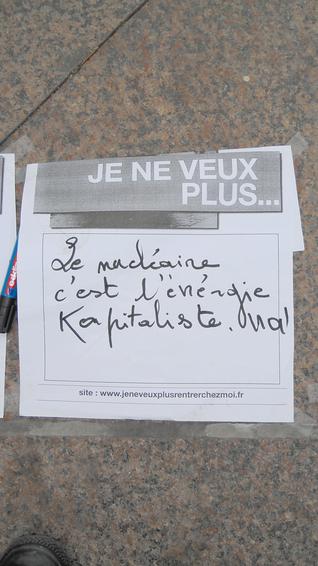 JE NE VEUX
PLUS...
Le nucléaire
c'est l'énérgie
Kapitaliste.
site : www.jeneveuxplusrentrerchezmoi.fr